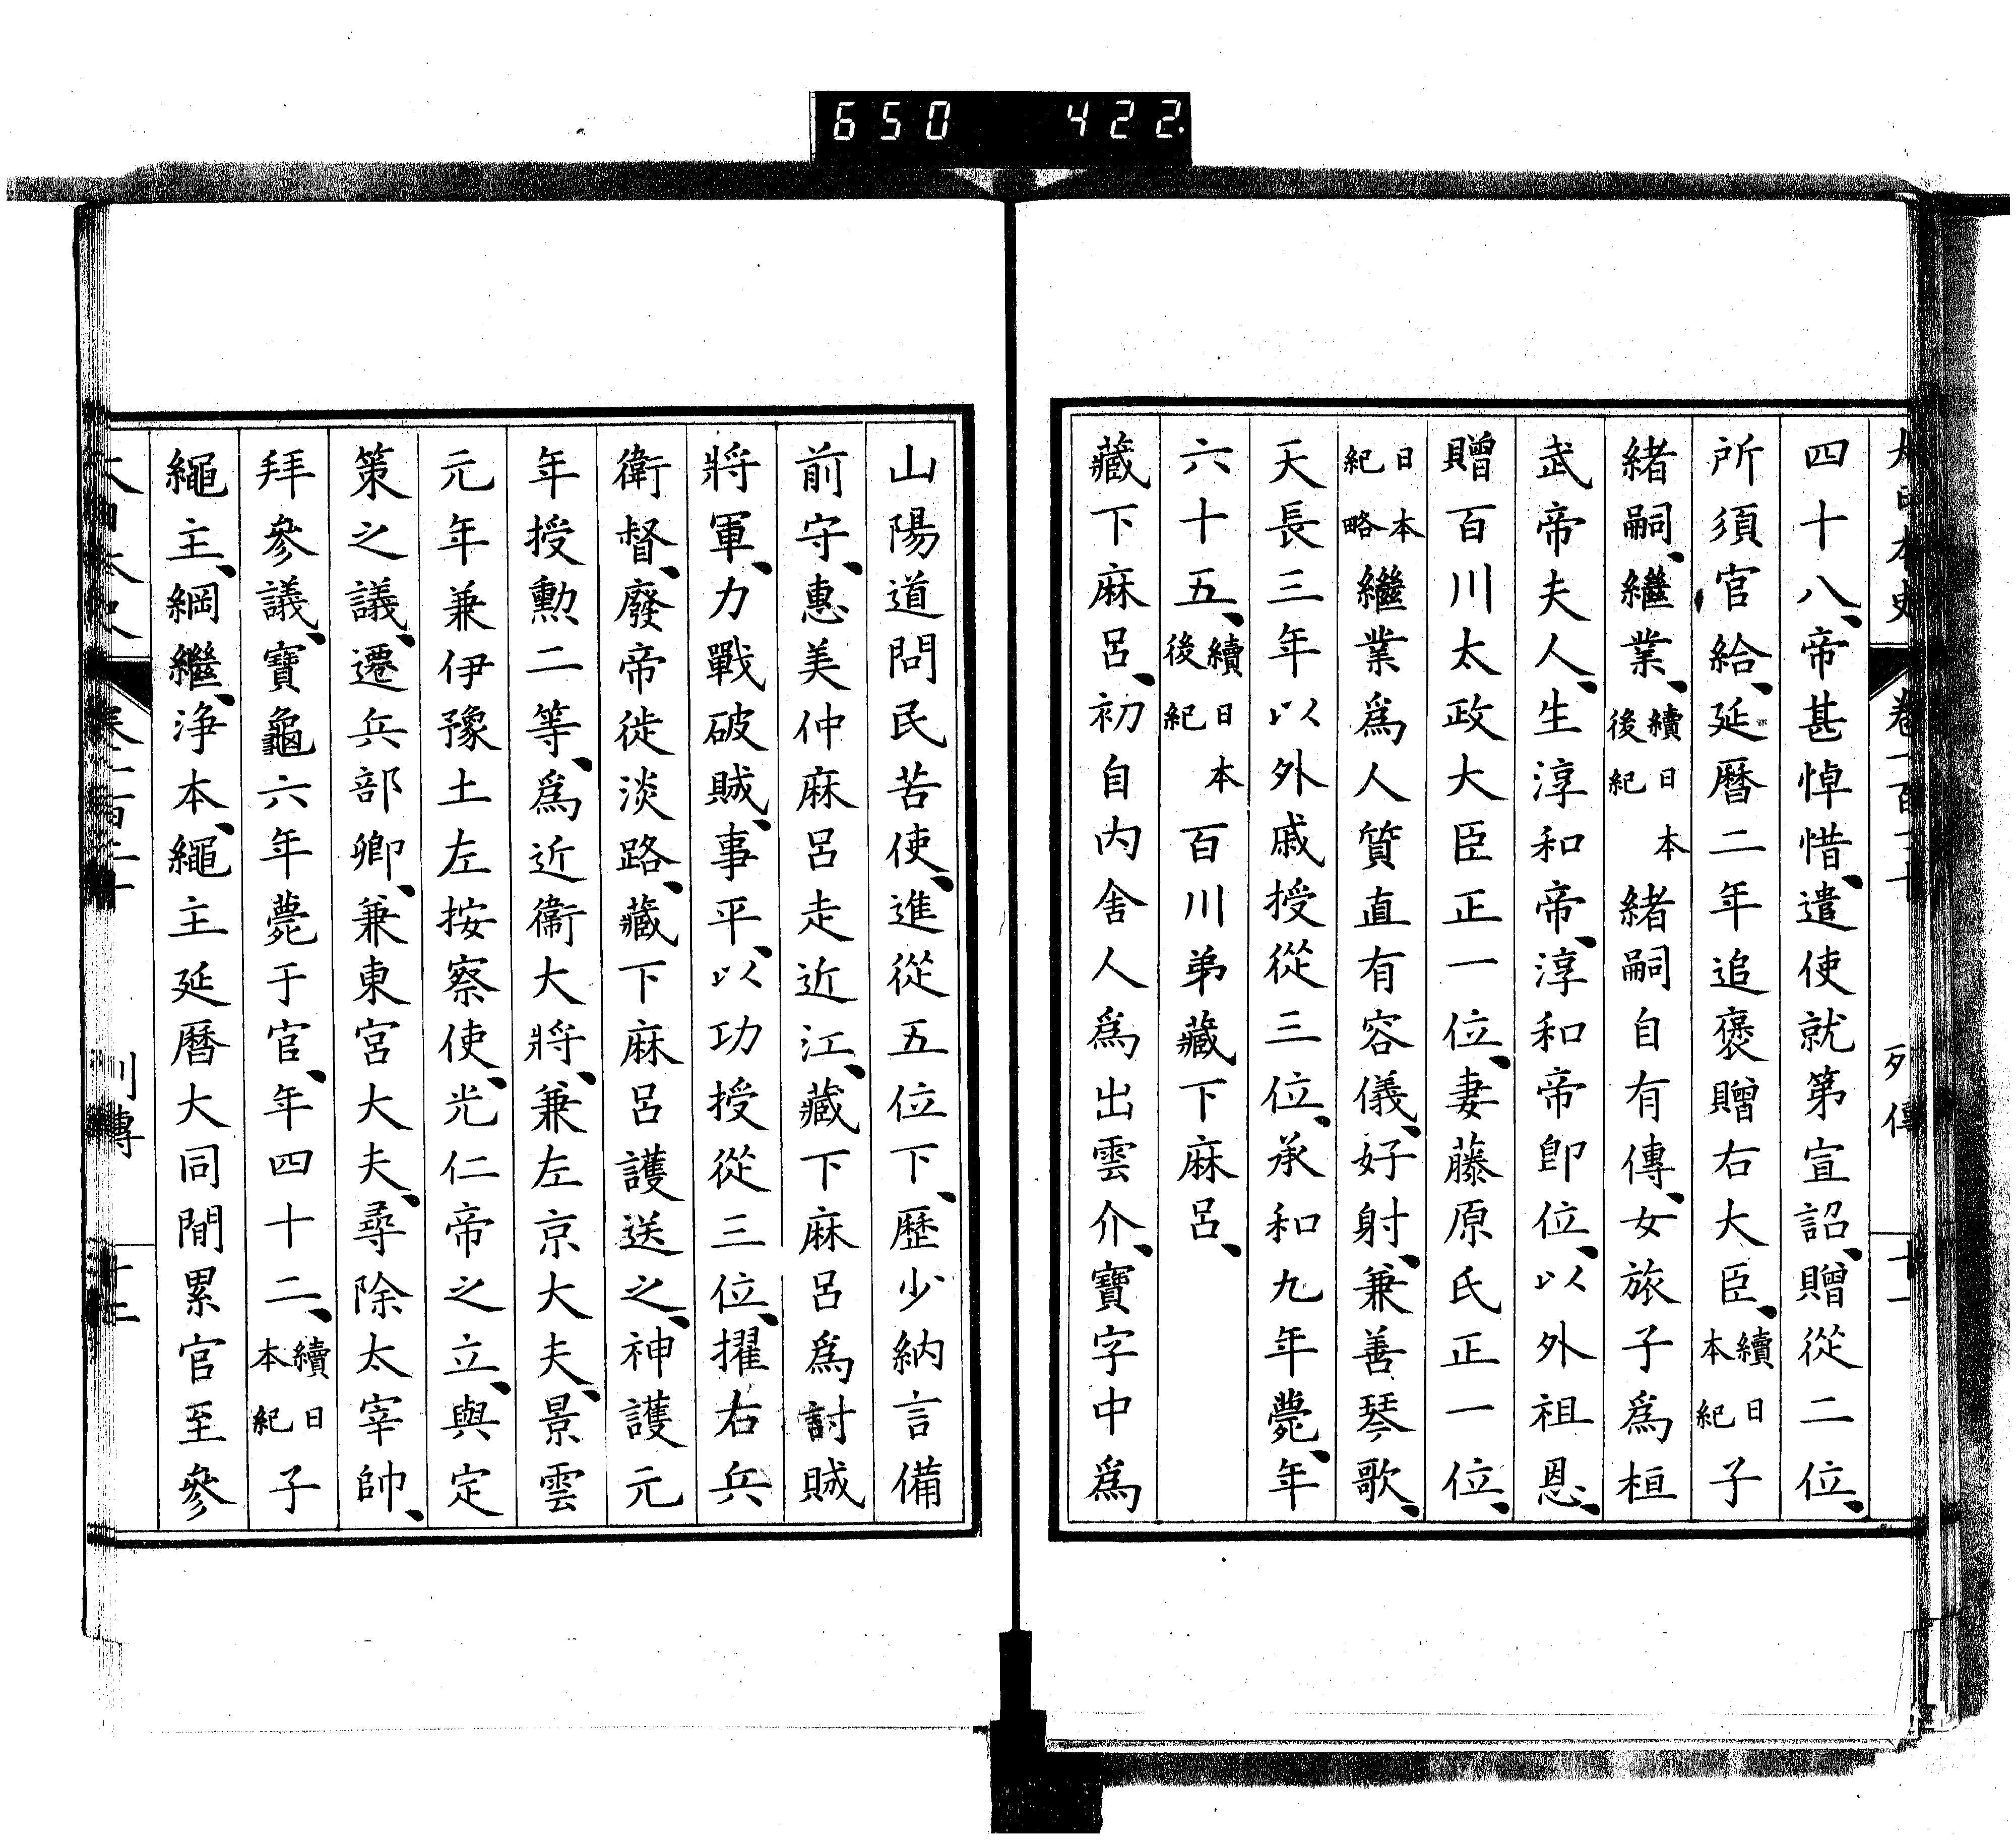 650 422.
四十八、帝甚悼惜、遣使就第宣詔、贈從二位、
所須官給、延曆二年追褒贈右大臣、續日本紀子
緒嗣、繼業、續日本後紀緒嗣自有傳、女旅子爲桓
武帝夫人、生淳和帝、淳和帝卽位、以外祖恩、
贈百川太政大臣正一位、妻藤原氏正一位、
日本紀略繼業爲人質直有容儀、好射、兼善琴歌、
天長三年以外戚授從三位、承和九年薨、年
六十五、續日本後紀百川弟藏下麻呂、
藏下麻呂、初自內舍人爲出雲介、寶字中爲
山陽道問民苦使、進從五位下、歷少納言備
前守、惠美仲麻呂走近江、藏下麻呂爲討賊
將軍、力戰破賊、事平、以功授從三位、擢右兵
衛督、廢帝徙淡路、藏下麻呂護送之、神護元
年授勳二等、爲近衞大將、兼左京大夫、景雲
元年兼伊豫土左按察使、光仁帝之立、與定
策之議、遷兵部卿、兼東宮大夫、尋除太宰帥、
拜參議、寶龜六年薨于官、年四十二、續日本紀子
繩主、綱繼、浄本、繩主延曆大同間累官至參